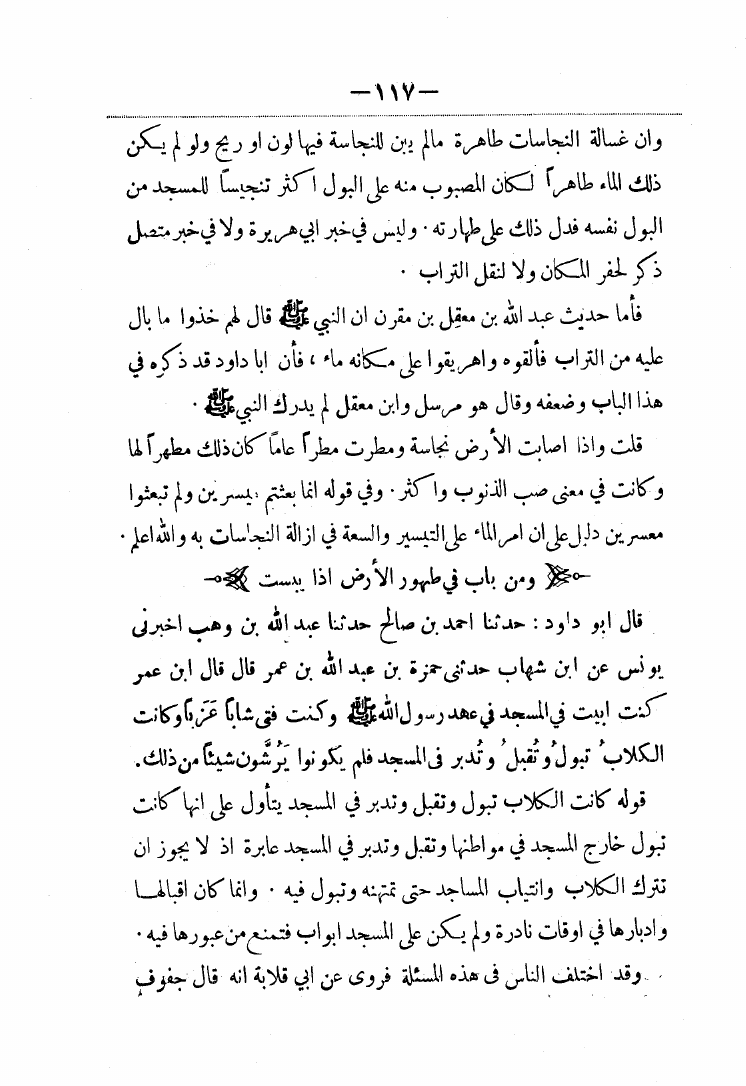 —١١٧—
وان غسالة النجاسات طاهرة مالم يبن للنجاسة فيها لون او ريح ولو لم يكن
ذلك الماء طاهراً لكان المصبوب منه على البول اكثر تنجيساً للمسجد من
البول نفسه فدل ذلك على طهارته . وليس في خبر ابي هريرة ولا في خبر متصل
ذكر لحفر المكان ولا لنقل التراب .
فأما حديث عبد الله بن معقل بن مقرن ان النبي ﷺ قال لهم خذوا ما بال
عليه من التراب فألقوه واهريقوا على مكانه ماء ، فأن ابا داود قد ذكره في
هذا الباب وضعفه وقال هو مرسل وابن معقل لم يدرك النبي ﷺ .
قلت واذا اصابت الأرض نجاسة ومطرت مطراً عاماً كان ذلك مطهراً لها
وكانت في معنى صب الذنوب واكثر . وفي قوله انما بعثتم ميسرين ولم تبعثوا
معسرين دليل على ان امر الماء على التيسير والسعة في ازالة النجاسات به والله اعلم .
ومن باب في طهور الأرض اذا يبست
قال ابو داود : حدثنا احمد بن صالح حدثنا عبد الله بن وهب اخبرنى
يونس عن ابن شهاب حدثنى حمزة بن عبد الله بن عمر قال قال ابن عمر
كنت ابيت في المسجد في عهد رسول الله ﷺ وكنت فتى شاباً عَزَباً وكانت
الكلابُ تبولُ وتُقبلُ وتُدبر فى المسجد فلم يكونوا يَرُشَّون شيئاً من ذلك .
قوله كانت الكلاب تبول وتقبل وتدبر في المسجد يتأول على انها كانت
تبول خارج المسجد في مواطنها وتقبل وتدبر في المسجد عابرة اذ لا يجوز ان
تترك الكلاب وانتياب المساجد حتى تمتهنه وتبول فيه . وانما كان اقبالها
وادبارها في اوقات نادرة ولم يكن على المسجد ابواب فتمنع من عبورها فيه .
وقد اختلف الناس فى هذه المسئلة فروى عن ابي قلابة انه قال جفوف